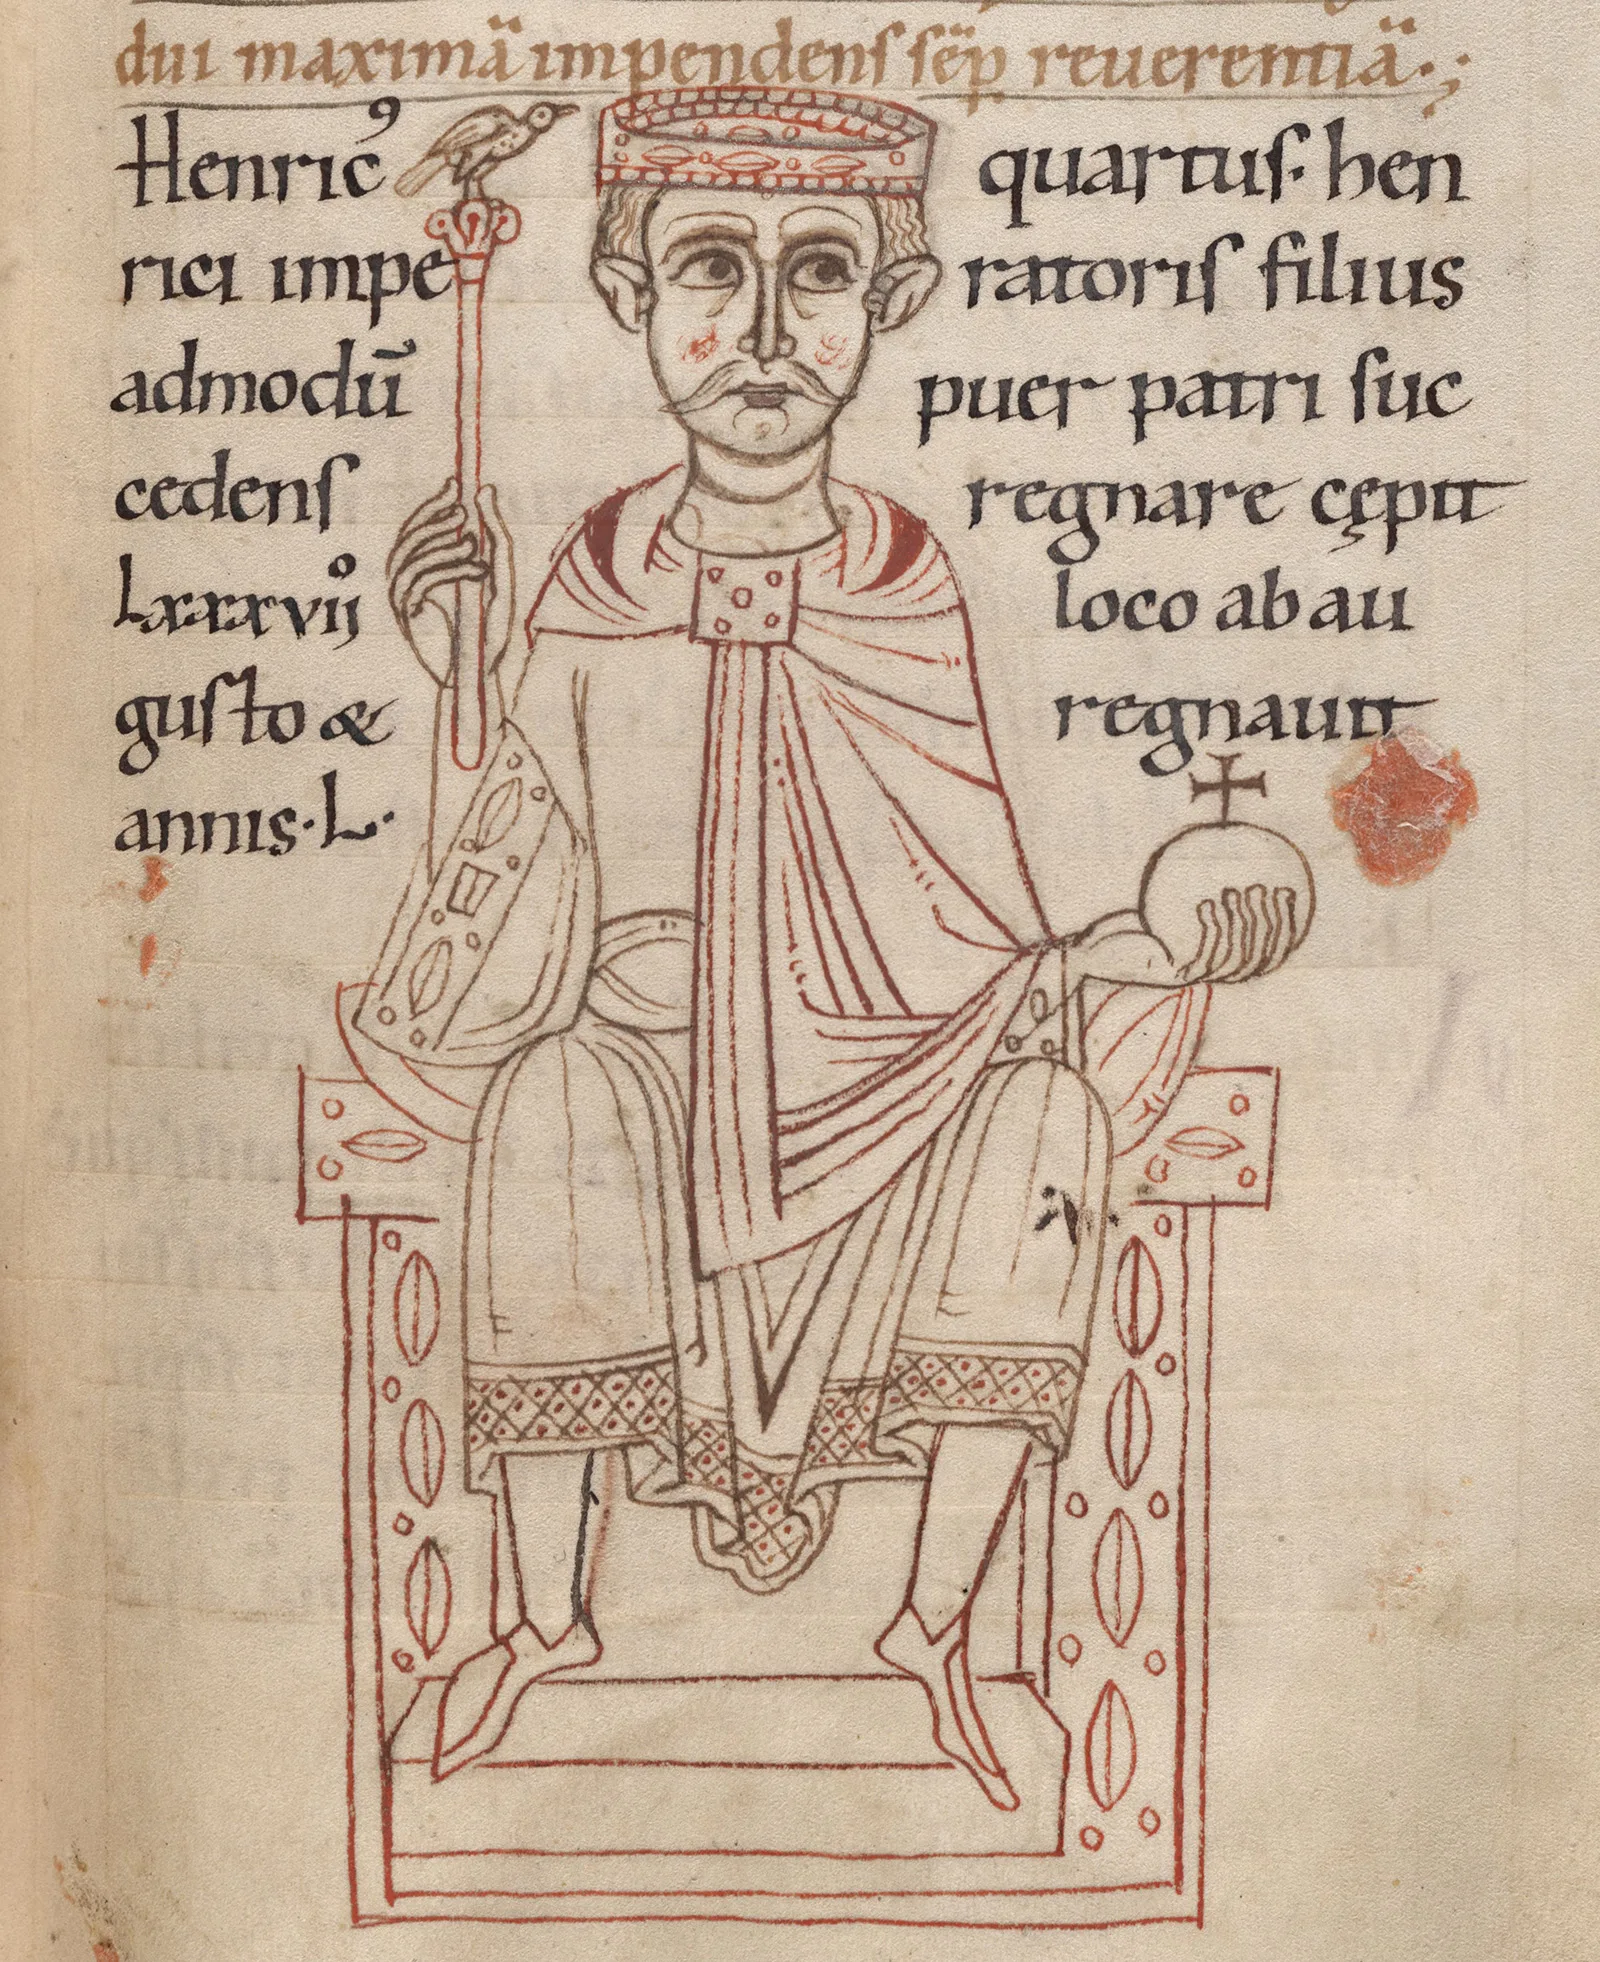 dui maximā impendens sēp reuerentiā.;
Henricꝰ quartus. hen
rici impe ratoris filius
admodū puer patri suc
cedens regnare cępit
Lxxxvijº loco ab au
gusto & regnauit
annis. L.